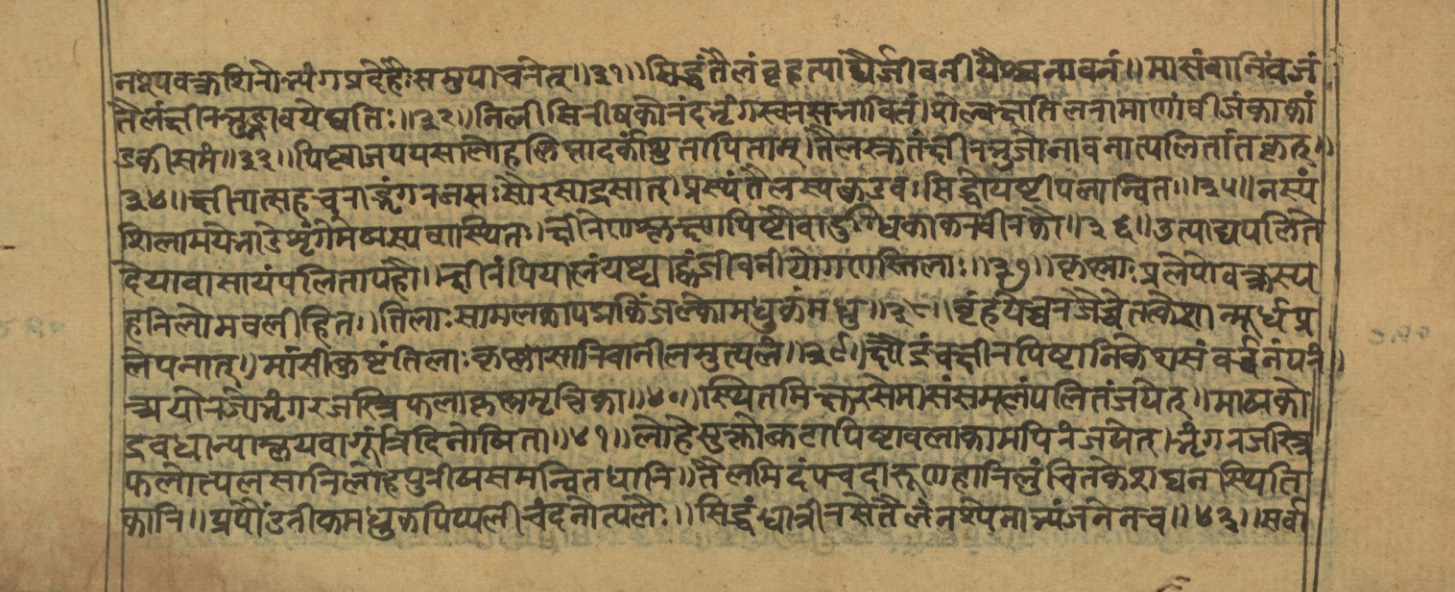 नश्पवक्त्रशिरोभ्यंगप्रदेहैः समुपाचरेत्॥३१॥सिद्धंतैलंवृहत्याद्यैर्जीवनीयैश्चनावनं॥मासंवानिंवजं
तैलंक्षीरभुङ्नावयेद्यतिः॥३२॥निलीसिरीषकोरंदभृंगस्वरसभावितं।शेल्वक्षतिलरामाणांवीजंकाकां
डकीसमं॥३३॥पिष्ट्वाजपयसालोहल्लिप्तादर्कांशुतापितात्।तैलंस्रुतंक्षीरभुजोनावनात्पलितांतकृत्॥
३४॥क्षीरात्सहचराद्भृंगरजसःसौरसाद्रसात्।प्रस्थंतैलस्यकुडवःसिद्धोयष्टीपलान्वितः॥३५॥नस्यं
शिलामयेभांडेशृंगेमेषस्यवास्थितः।क्षीरेणश्लक्ष्णपिष्टौवादुग्धिकाकरवीरकौ॥३६॥उत्पाद्यपलिते
देयावासायंपलितापहौ।क्षीरंपियालंयष्ट्याह्वंजीवनीयोगणस्तिलाः॥३७॥कृष्णाःप्रलेपोवक्त्रस्य
हरिलोमवलीहितः॥तिलाःसामलकापद्मकिंजल्कोमधुकंमधु॥३८॥वृंहयेच्चरजेच्चैतत्केशान्मूर्धप्र
लेपनात्॥मांसीकुष्टंतिलाःकृष्णासारिवानीलमुत्पलं॥३९॥क्षौद्रंचक्षीरपिष्टानिकेशसंवर्द्धनंपरं॥
अयोरजोभृंगरजस्त्रिफलाकृष्णमृत्तिका॥४०॥स्थितमिक्षुरसेमासंसमूलंपलितंजयेत्॥माषको
द्रवधान्याम्लयवागूंत्रिदिनोषिता॥४१॥लोहेसुक्तोकटापिष्टावलाकामपिरंजयेत्।भृंगरजस्त्रि
फलोत्पलसारिलोहपुरीषसमन्वितधारि॥तैलमिदंपचदारुणहारिलुंचितकेशघनस्थिति
कारि॥प्रपौंडरीकमधुकपिप्पलीचंदनोत्पलैः॥सिद्धंधात्रीरसेतैलंनश्येनाभ्यंजनेनच॥४३॥सर्वा